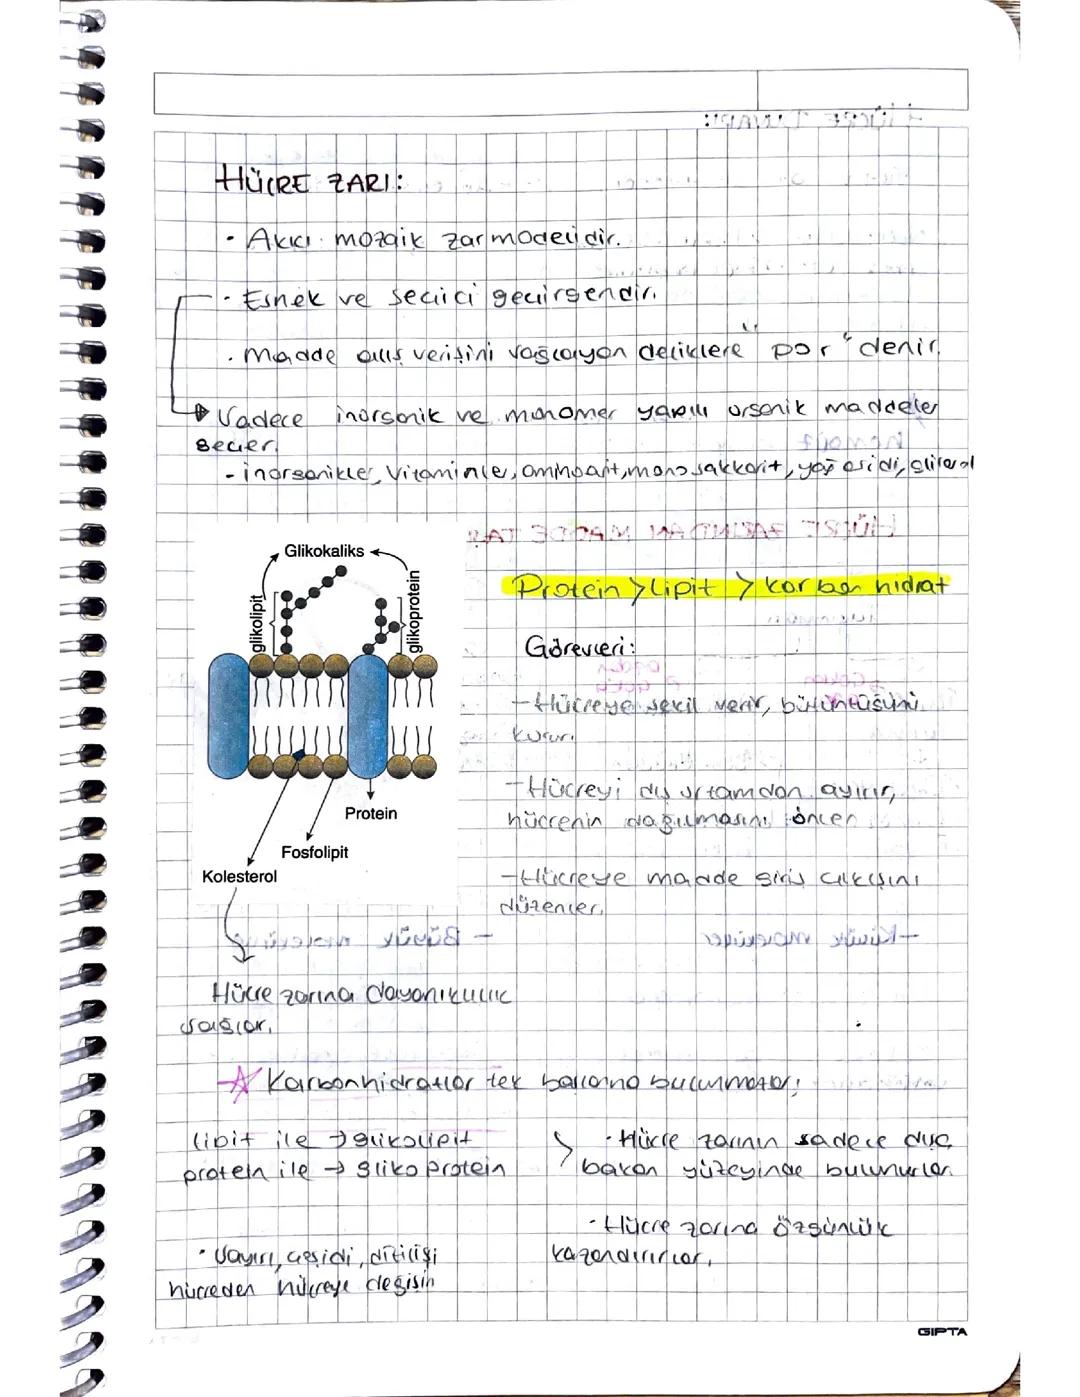 HÜCRE ZARI:
· Akıcı mozaik zar modelidir.
· Esnek ve seçici geçirgendir.
· Madde alış verişini sağlayan deliklere "por" denir.
Sadece inorganik ve monomer yapılı organik maddeler
geçer.
- inorganikler, vitaminler, aminoasit, monosakkarit, yağ asidi, gliserol
Glikokaliks
glikolipit
glikoprotein
Protein > Lipit > karbonhidrat
Görevleri:
- Hücreye şekil verir, bütünlüğünü
korur.
- Hücreyi dış ortamdan ayırır,
hücrenin dağılmasını önler.
- Hücreye madde giriş çıkışını
düzenler.
Protein
Fosfolipit
Kolesterol
Hücre zarına dayanıklılık
sağlar.
☆ Karbonhidratlar tek başlarına bulunmazlar!
lipit ile → glikolipit
protein ile → glikoprotein
· Hücre zarının sadece dışa
bakan yüzeyinde bulunurlar.
· Hücre zarına özgünlük
kazandırırlar.
· Sayısı, çeşidi, dizilişi
hücreden hücreye değişir
GIPTA